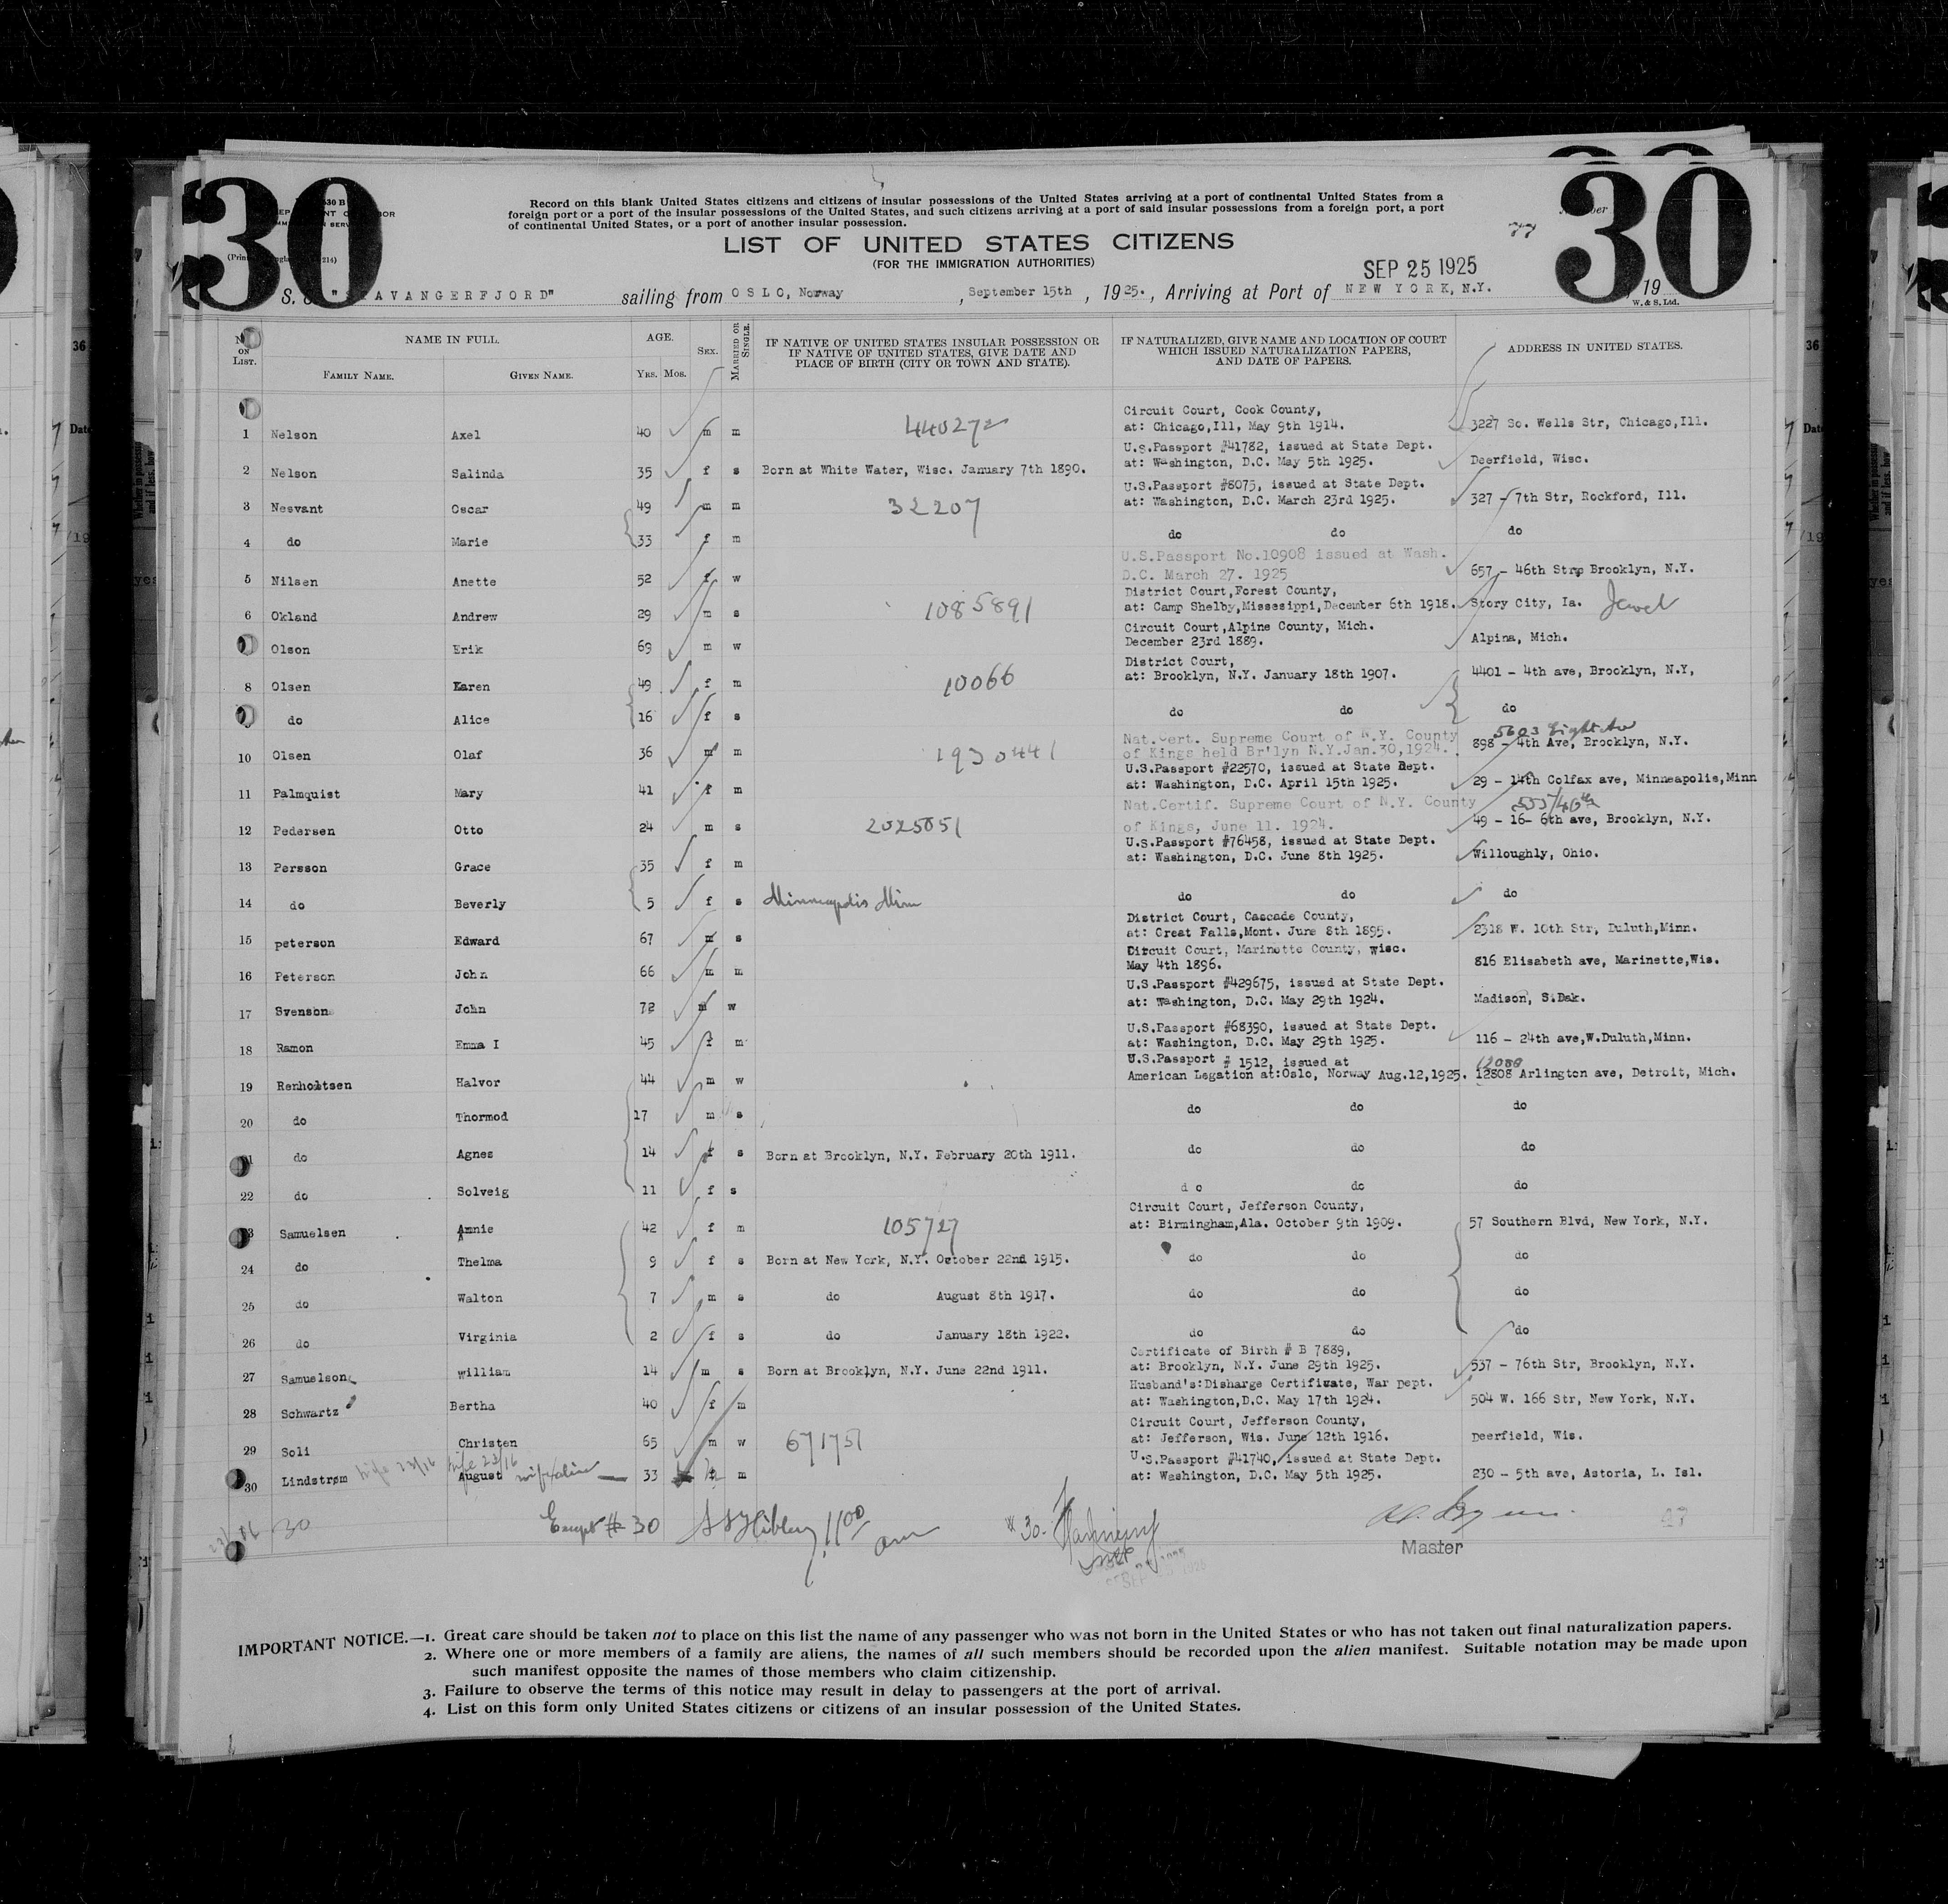 30
30
Record on this blank United States citizens and citizens of insular possessions of the United States arriving at a port of continental United States from a
foreign port or a port of the insular possessions of the United States, and such citizens arriving at a port of said insular possessions from a foreign port, a port
of continental United States, or a port of another insular possession.
LIST OF UNITED STATES CITIZENS
(FOR THE IMMIGRATION AUTHORITIES)
77
SEP 25 1925
S. S. "STAVANGERFJORD" sailing from OSLO, Norway, September 15th, 1925., Arriving at Port of NEW YORK, N.Y. 19
W. & S. Ltd.
No. ON LIST. NAME IN FULL. FAMILY NAME. GIVEN NAME. AGE. YRS. MOS. SEX. MARRIED OR SINGLE. IF NATIVE OF UNITED STATES INSULAR POSSESSION OR IF NATIVE OF UNITED STATES, GIVE DATE AND PLACE OF BIRTH (CITY OR TOWN AND STATE). IF NATURALIZED, GIVE NAME AND LOCATION OF COURT WHICH ISSUED NATURALIZATION PAPERS, AND DATE OF PAPERS. ADDRESS IN UNITED STATES.
Circuit Court, Cook County,
1 Nelson Axel 40 m m 440272 at: Chicago,Ill, May 9th 1914. 3227 So. Wells Str, Chicago,Ill.
U.S.Passport #41782, issued at State Dept.
2 Nelson Salinda 35 f s Born at White Water, Wisc. January 7th 1890. at: Washington, D.C. May 5th 1925. Deerfield, Wisc.
U.S.Passport #8075, issued at State Dept.
3 Nesvant Oscar 49 m m 32207 at: Washington, D.C. March 23rd 1925. 327 - 7th Str, Rockford, Ill.
4 do Marie 33 f m do do do
U.S.Passport No.10908 issued at Wash.
5 Nilsen Anette 52 f w D.C. March 27. 1925 657 - 46th Str, Brooklyn, N.Y.
District Court,Forest County,
6 Okland Andrew 29 m s 1085891 at: Camp Shelby,Missesippi,December 6th 1918. Story City, Ia. Jewel
Circuit Court,Alpine County, Mich.
Olson Erik 69 m w December 23rd 1889. Alpina, Mich.
District Court,
8 Olsen Karen 49 f m 10066 at: Brooklyn, N.Y. January 18th 1907. 4401 - 4th ave, Brooklyn, N.Y,
do Alice 16 f s do do do
Nat.Cert. Supreme Court of N.Y. County 5603 Eight Av
10 Olsen Olaf 36 m m 1930441 of Kings held Br'lyn N.Y.Jan.30,1924. 898 - 4th Ave, Brooklyn, N.Y.
U.S.Passport #22570, issued at State Dept.
11 Palmquist Mary 41 f m at: Washington, D.C. April 15th 1925. 29 - 14th Colfax ave, Minneapolis,Minn
Nat.Certif. Supreme Court of N.Y. County
12 Pedersen Otto 24 m s 2025851 of Kings, June 11. 1924. 49 - 16- 6th ave, Brooklyn, N.Y.
U.S.Passport #76458, issued at State Dept.
13 Persson Grace 35 f m at: Washington, D.C. June 8th 1925. Willoughly, Ohio.
14 do Beverly 5 f s Minneapolis Minn do do do
District Court, Cascade County,
15 peterson Edward 67 m s at: Great Falls,Mont. June 8th 1895. 2318 W. 10th Str, Duluth,Minn.
Circuit Court, Marinette County, wisc.
16 Peterson John 66 m m May 4th 1896. 816 Elisabeth ave, Marinette,Wis.
U.S.Passport #429675, issued at State Dept.
17 Svenson John 72 m w at: Washington, D.C. May 29th 1924. Madison, S.Dak.
U.S.Passport #68390, issued at State Dept.
18 Ramon Emma I 45 f m at: Washington, D.C. May 29th 1925. 116 - 24th ave,W.Duluth,Minn.
U.S.Passport # 1512, issued at 12080
19 Renholtsen Halvor 44 m w American Legation at:Oslo, Norway Aug.12,1925. 12808 Arlington ave, Detroit, Mich.
20 do Thormod 17 m s do do do
21 do Agnes 14 f s Born at Brooklyn, N.Y. February 20th 1911. do do do
22 do Solveig 11 f s do do do
Circuit Court, Jefferson County,
23 Samuelsen Annie 42 f m 105727 at: Birmingham,Ala. October 9th 1909. 57 Southern Blvd, New York, N.Y.
24 do Thelma 9 f s Born at New York, N.Y. October 22nd 1915. do do do
25 do Walton 7 m s do August 8th 1917. do do do
26 do Virginia 2 f s do January 18th 1922. do do do
Certificate of Birth # B 7889,
27 Samuelson william 14 m s Born at Brooklyn, N.Y. June 22nd 1911. at: Brooklyn, N.Y. June 29th 1925. 537 - 76th Str, Brooklyn, N.Y.
Husband's:Disharge Certificate, War Dept.
28 Schwartz Bertha 40 f m at: Washington,D.C. May 17th 1924. 504 W. 166 Str, New York, N.Y.
Circuit Court, Jefferson County,
29 Soli Christen 65 m w 671751 at: Jefferson, Wis. June 12th 1916. Deerfield, Wis.
U.S.Passport #41740, issued at State Dept.
30 Lindstrøm wife 23/16 August wife alien 33 m at: Washington, D.C. May 5th 1925. 230 - 5th ave, Astoria, L. Isl.
30 Except # 30 1100 am # 30.
Master
IMPORTANT NOTICE.—1. Great care should be taken not to place on this list the name of any passenger who was not born in the United States or who has not taken out final naturalization papers.
2. Where one or more members of a family are aliens, the names of all such members should be recorded upon the alien manifest. Suitable notation may be made upon
such manifest opposite the names of those members who claim citizenship.
3. Failure to observe the terms of this notice may result in delay to passengers at the port of arrival.
4. List on this form only United States citizens or citizens of an insular possession of the United States.